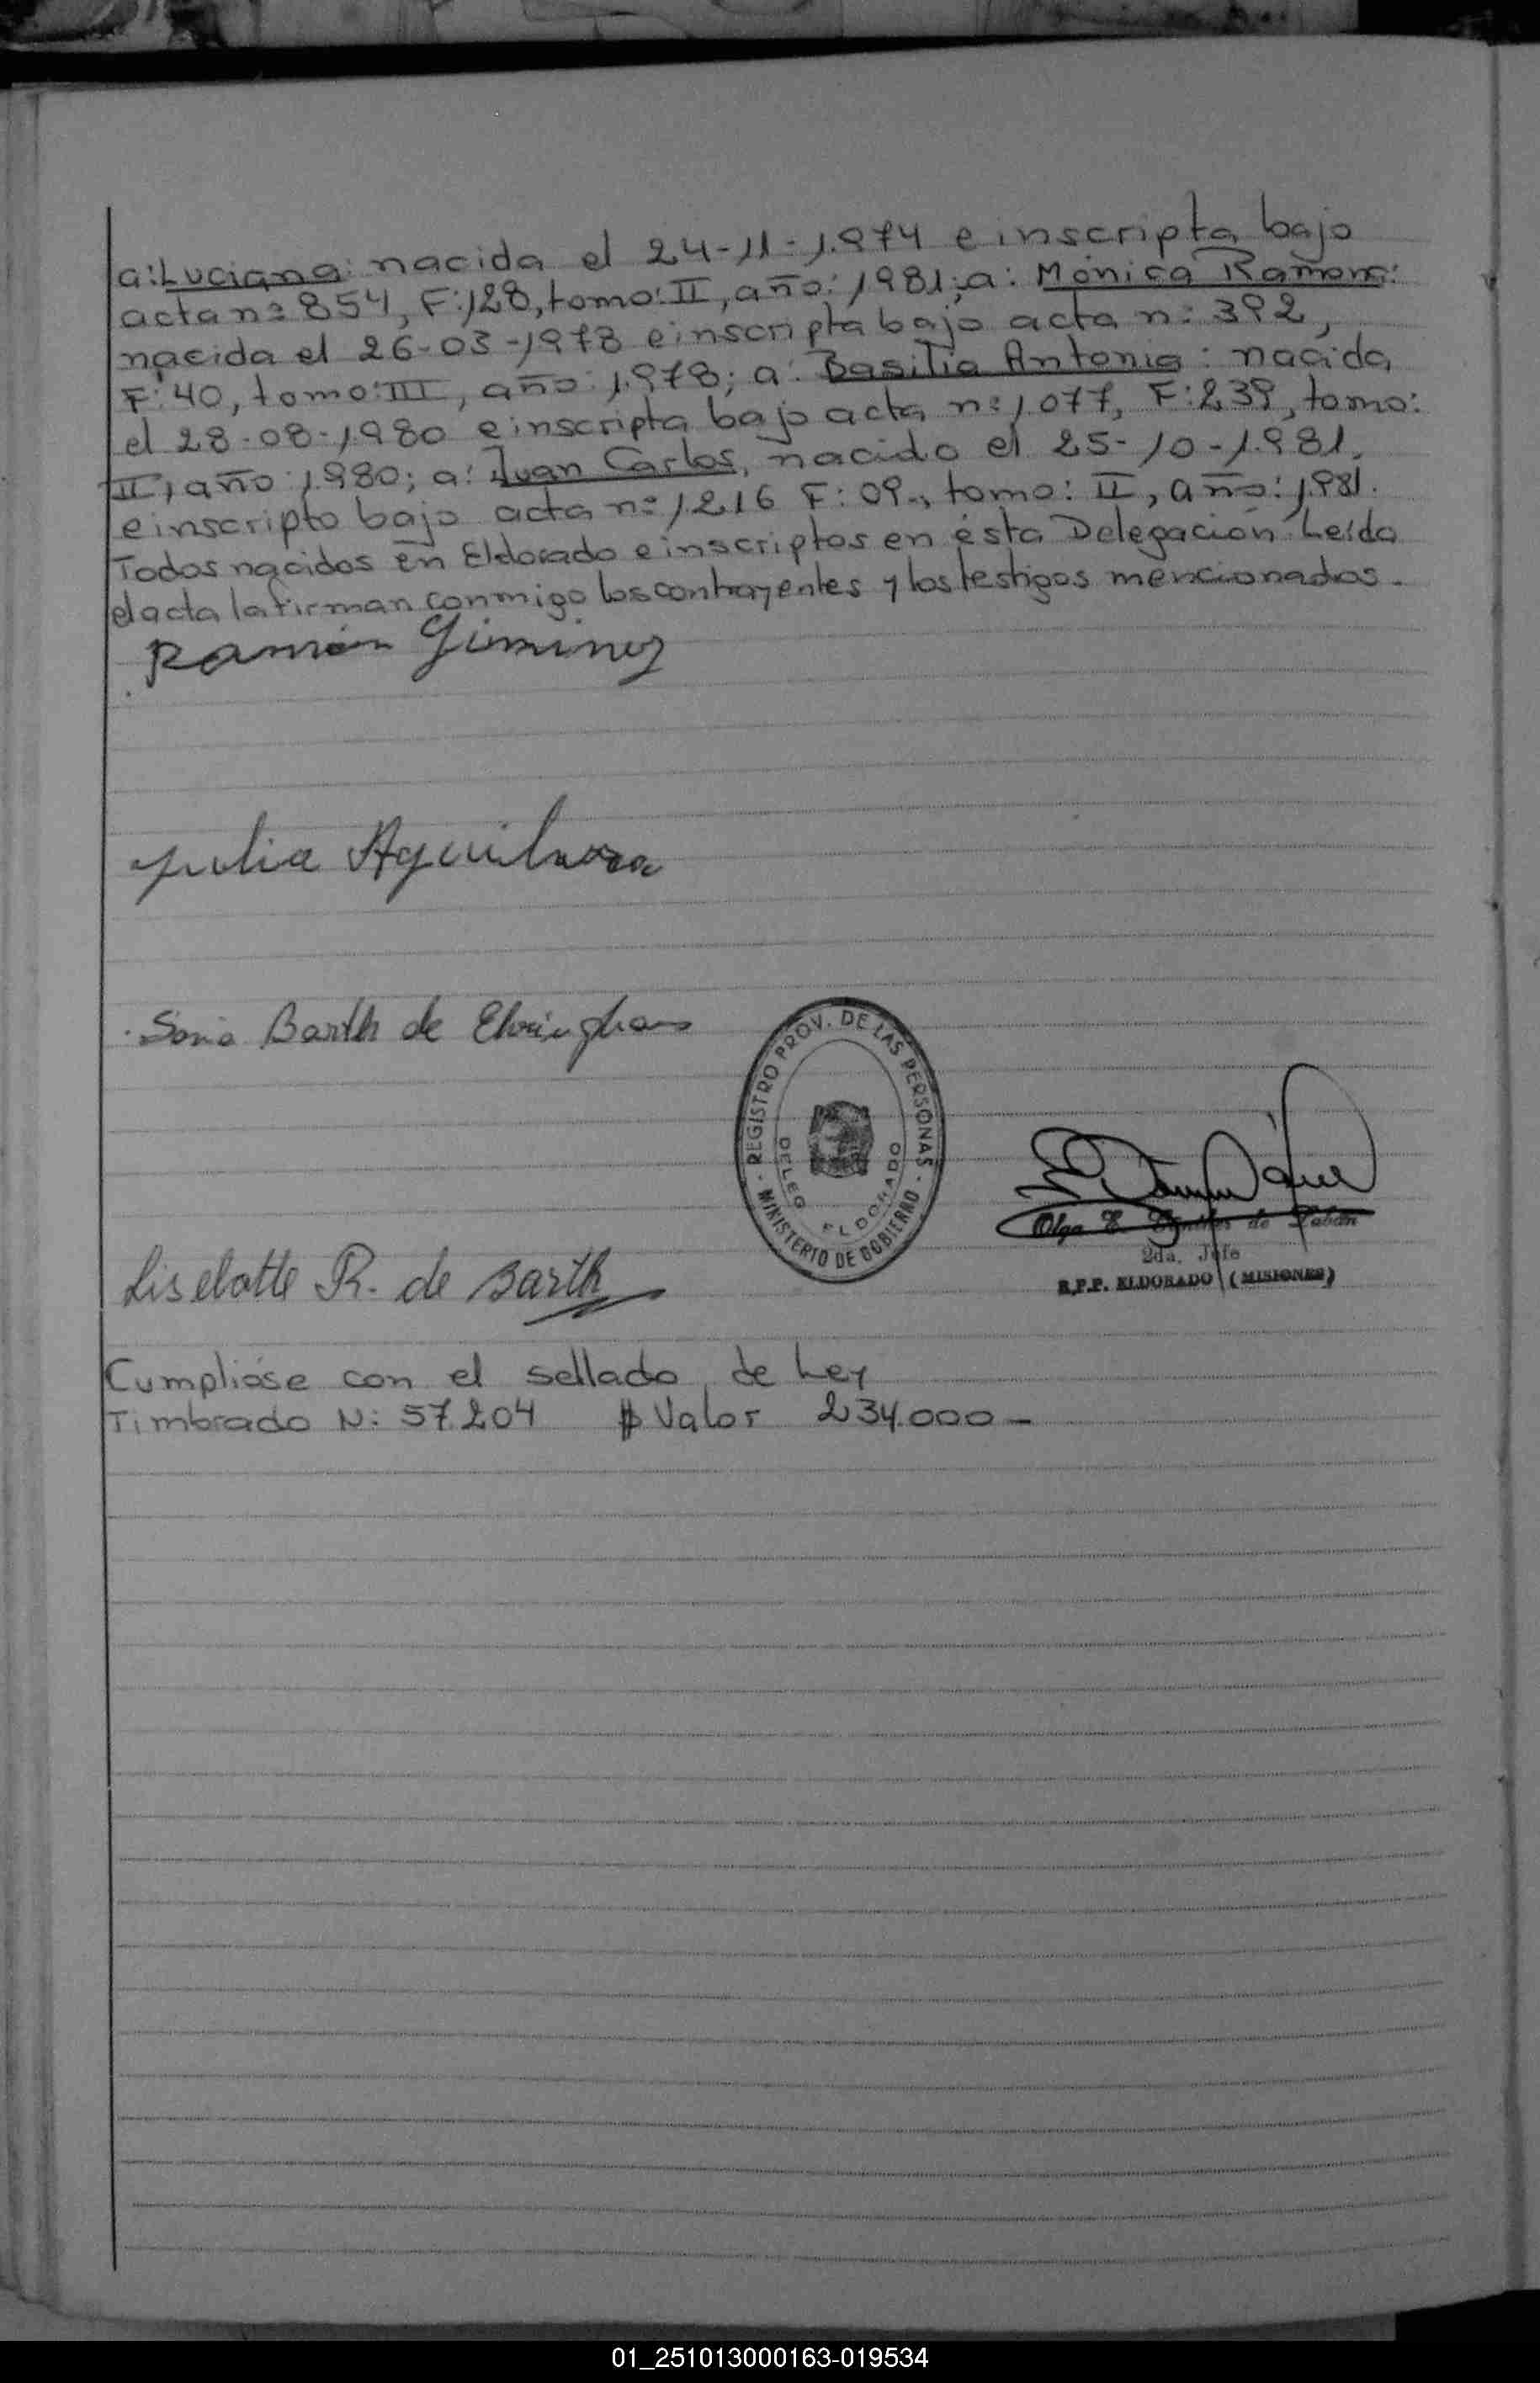 a: Luciana: nacida el 24-11-1.974 e inscripta bajo
acta n: 854, F: 128, tomo: II, año: 1981; a: Mónica Ramona:
nacida el 26-03-1978 e inscripta bajo acta n: 392,
F: 40, tomo: III, año: 1.978; a: Basilia Antonia: nacida
el 28-08-1.980 e inscripta bajo acta n: 1.077, F: 239, tomo:
II, año: 1.980; a: Juan Carlos, nacido el 25-10-1.981.
e inscripto bajo acta n: 1.216 F: 09., tomo: II, año: 1.981.
Todos nacidos en Eldorado e inscriptos en ésta Delegación. Leída
el acta la firman conmigo los contrayentes y los testigos mencionados.
Ramón Giminez
Julia Aguilera
Sonia Barth de
REGISTRO PROV. DE LAS PERSONAS - MINISTERIO DE GOBIERNO -
DELEG ELDORADO
Olga E. de
2da. Jefe
R.P.P. ELDORADO (MISIONES)
Liselotte R. de Barth
Cumplióse con el sellado de Ley
Timbrado N: 57.204 $ Valor 234.000-
01_251013000163-019534